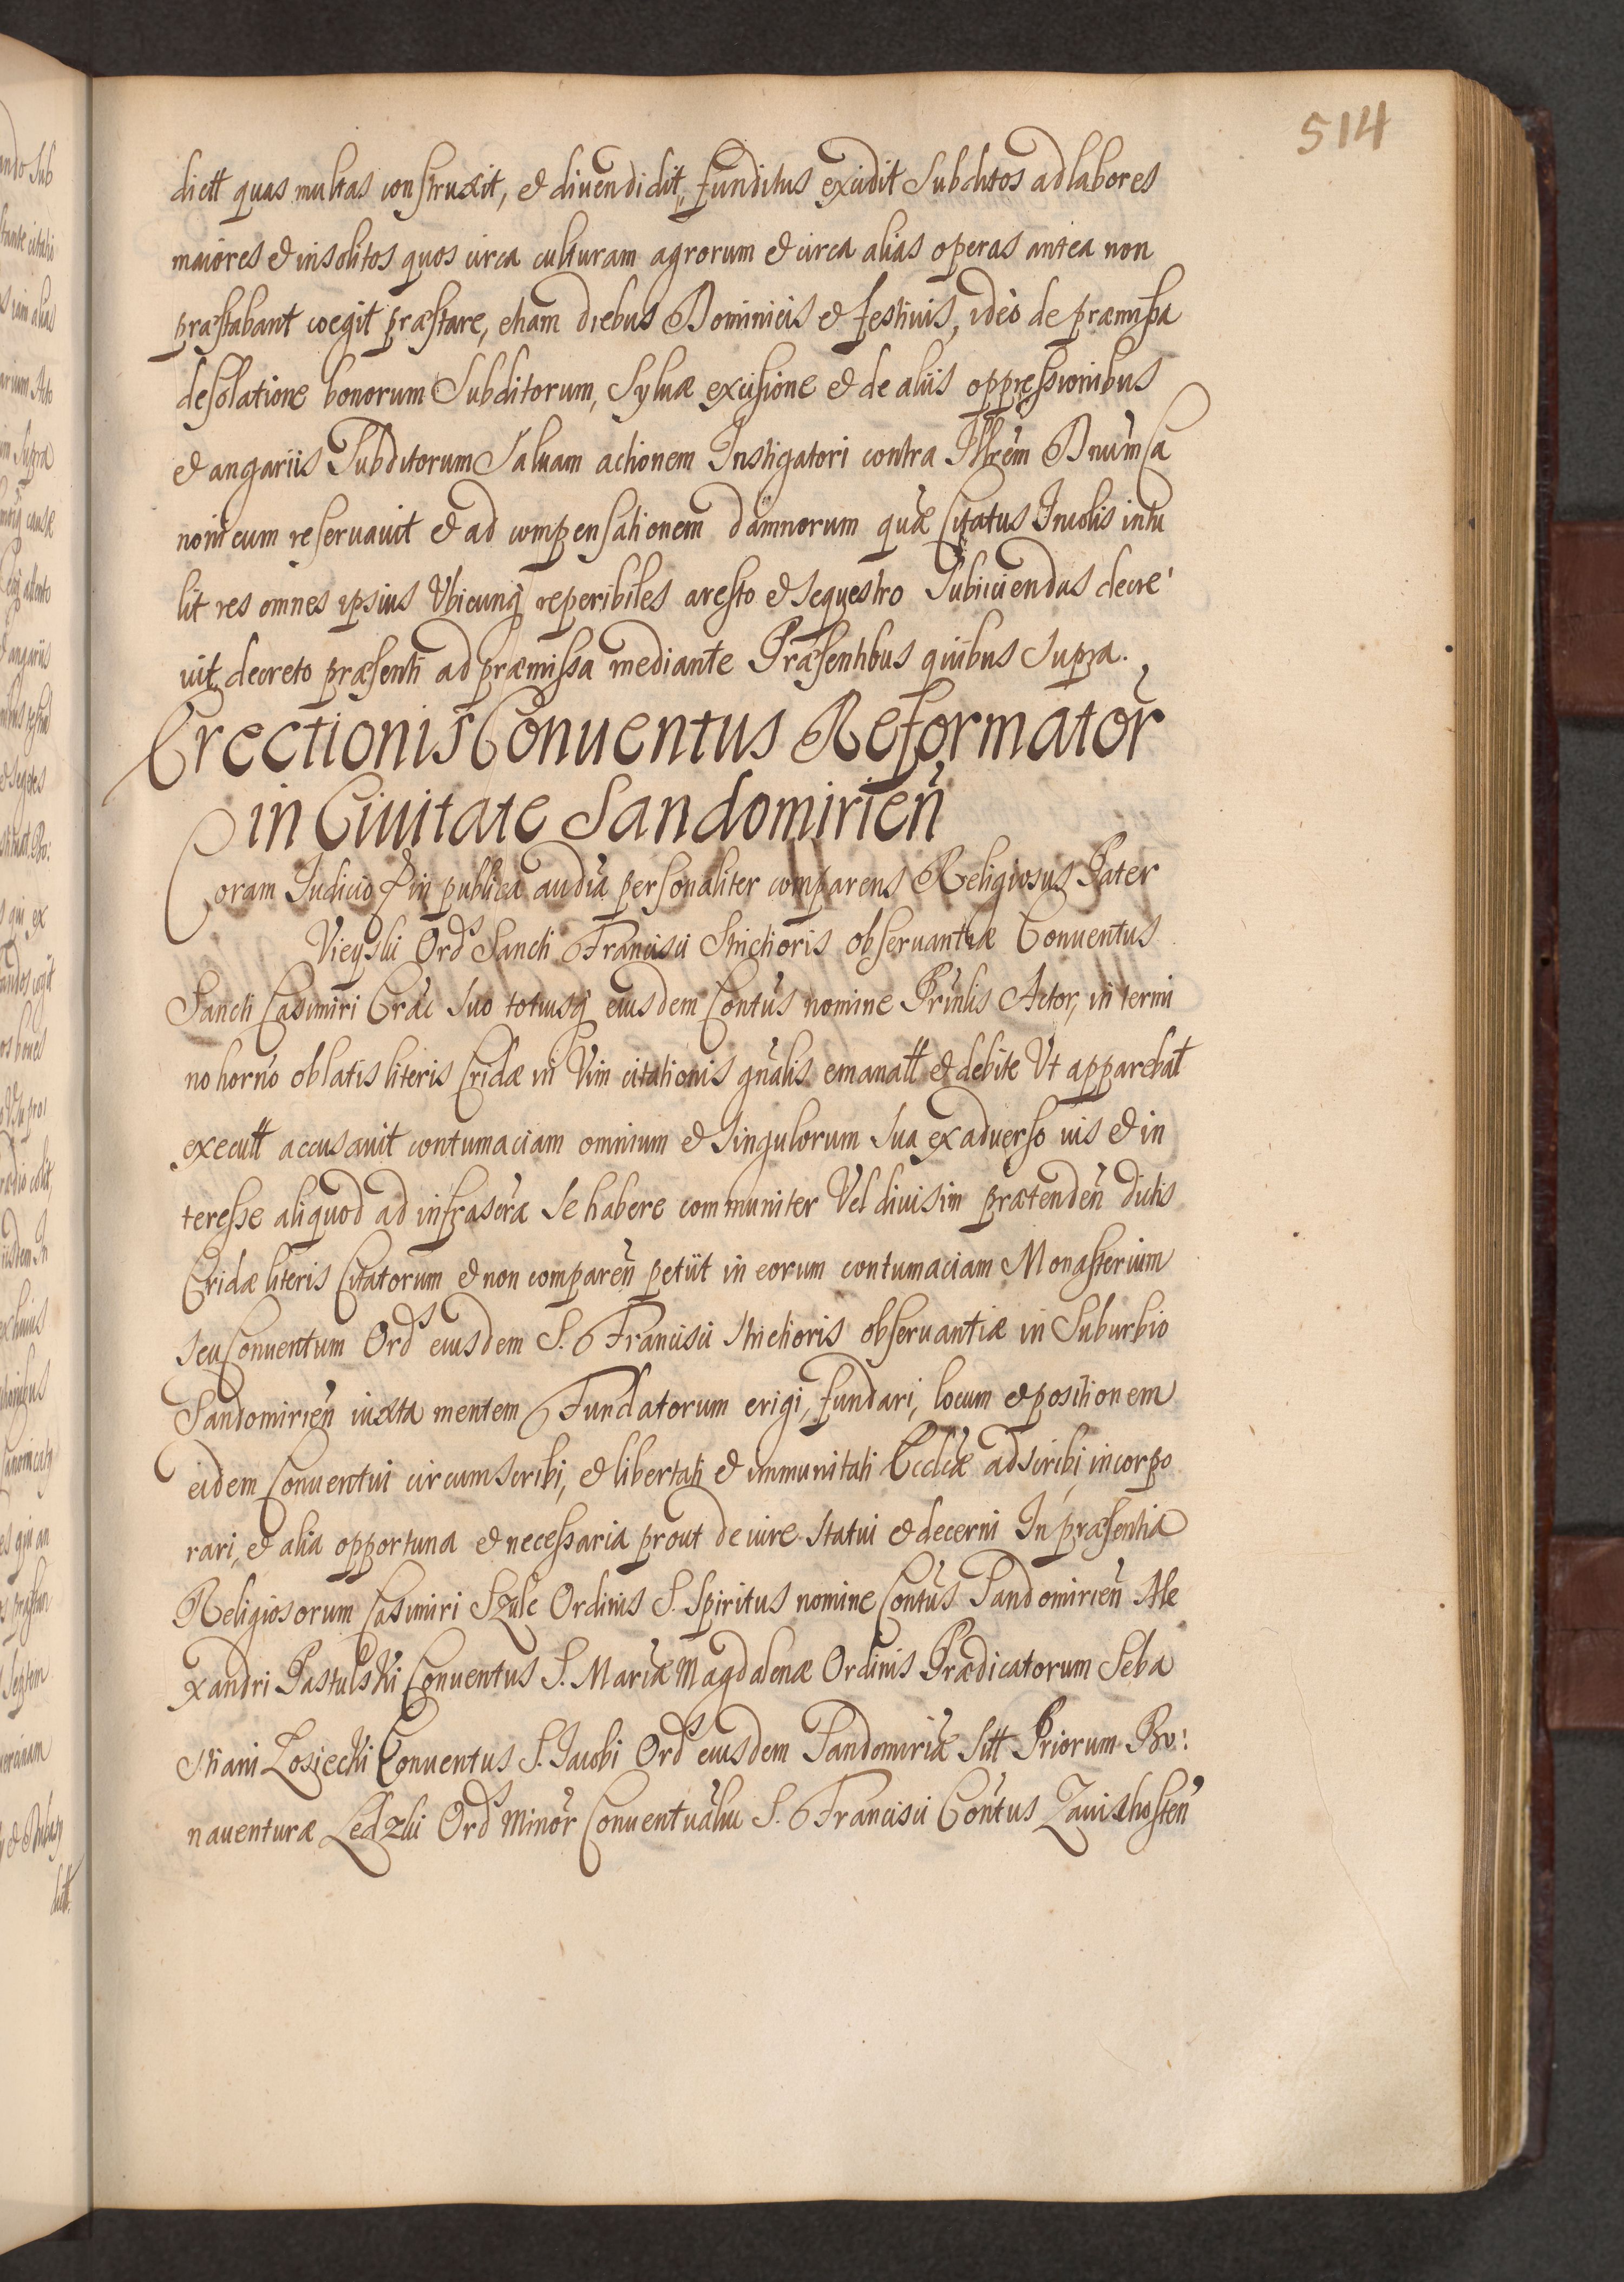 514
dictt quas multas construxit, et diuendidit, funditus excidit Subditos ad labores
maiores et insolitos quos circa culturam agrorum et circa alias operas antea non
præstabant coegit præstare, etiam diebus Dominicis et festiuis, ideo de præmissa
desolatione bonorum Subditorum, Syluæ excisione et de aliis oppressionibus
et angariis Subditorum Saluam actionem Instigatori contra Illrem Dnum Ca
nonicum reseruauit et ad compensationem damnorum quæ Citatus Incolis intu
lit res omnes ipsius Vbicunq reperibiles aresto et sequestro Subiiciendas decre
uit decreto præsenti ad præmissa mediante Præsentibus quibus Supra.
Erectionis Conuentus Reformator
in Ciuitate Sandomirien
Coram Iudicio in publica audia personaliter comparens Religiosus Pater
Vieyski Ord Sancti Francisci Strictioris obseruantiæ Conuentus
Sancti Casimiri Crac Suo totiusq eiusdem Contus nomine Prinlis Actor, in termi
no horno oblatis literis Cridæ in Vim citationis gnalis emanatt et debite Vt apparebat
executt accusauit contumaciam omnium et Singulorum Sua ex aduerso ius et in
teresse aliquod ad infrascra Se habere communiter Vel diuisim prætenden dictis
Cridæ literis Citatorum et non comparen petiit in eorum contumaciam Monasterium
Seu Conuentum Ord eiusdem S. Francisci Strictioris obseruantiæ in Suburbio
Sandomirien iuxta mentem Fundatorum erigi, fundari, locum et positionem
eidem Conuentui circumscribi, et libertati et immunitati Eccliæ adscribi, incorpo
rari, et alia opportuna et necessaria prout de iure Statui et decerni In præsentia
Religiosorum Casimiri Szulc Ordinis S. Spiritus nomine Contus Sandomirien Ale
xandri Pastulski Conuentus S. Mariæ Magdalenæ Ordinis Prædicatorum Seba
stiani Losiecki Conuentus S. Iacobi Ord eiusdem Sandomiriæ Sitt Priorum Bo:
nauenturæ Ledzki Ord Minor Conuentualiu S. Francisci Contus Zauichosten